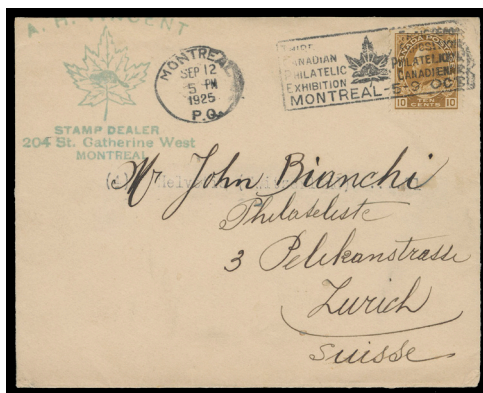 A. H. VINCENT
STAMP DEALER
204 St. Catherine West
MONTREAL
MONTREAL
SEP 12
5 PM
1925
P.Q.
THIRD
CANADIAN
PHILATELIC
EXHIBITION
MONTREAL - 5-9 OC
PHILATELIQUE
CANADIENNE
10 TEN CENTS 10
Mr John Bianchi
Philateliste
3 Pelikanstrasse
Zurich
Suisse